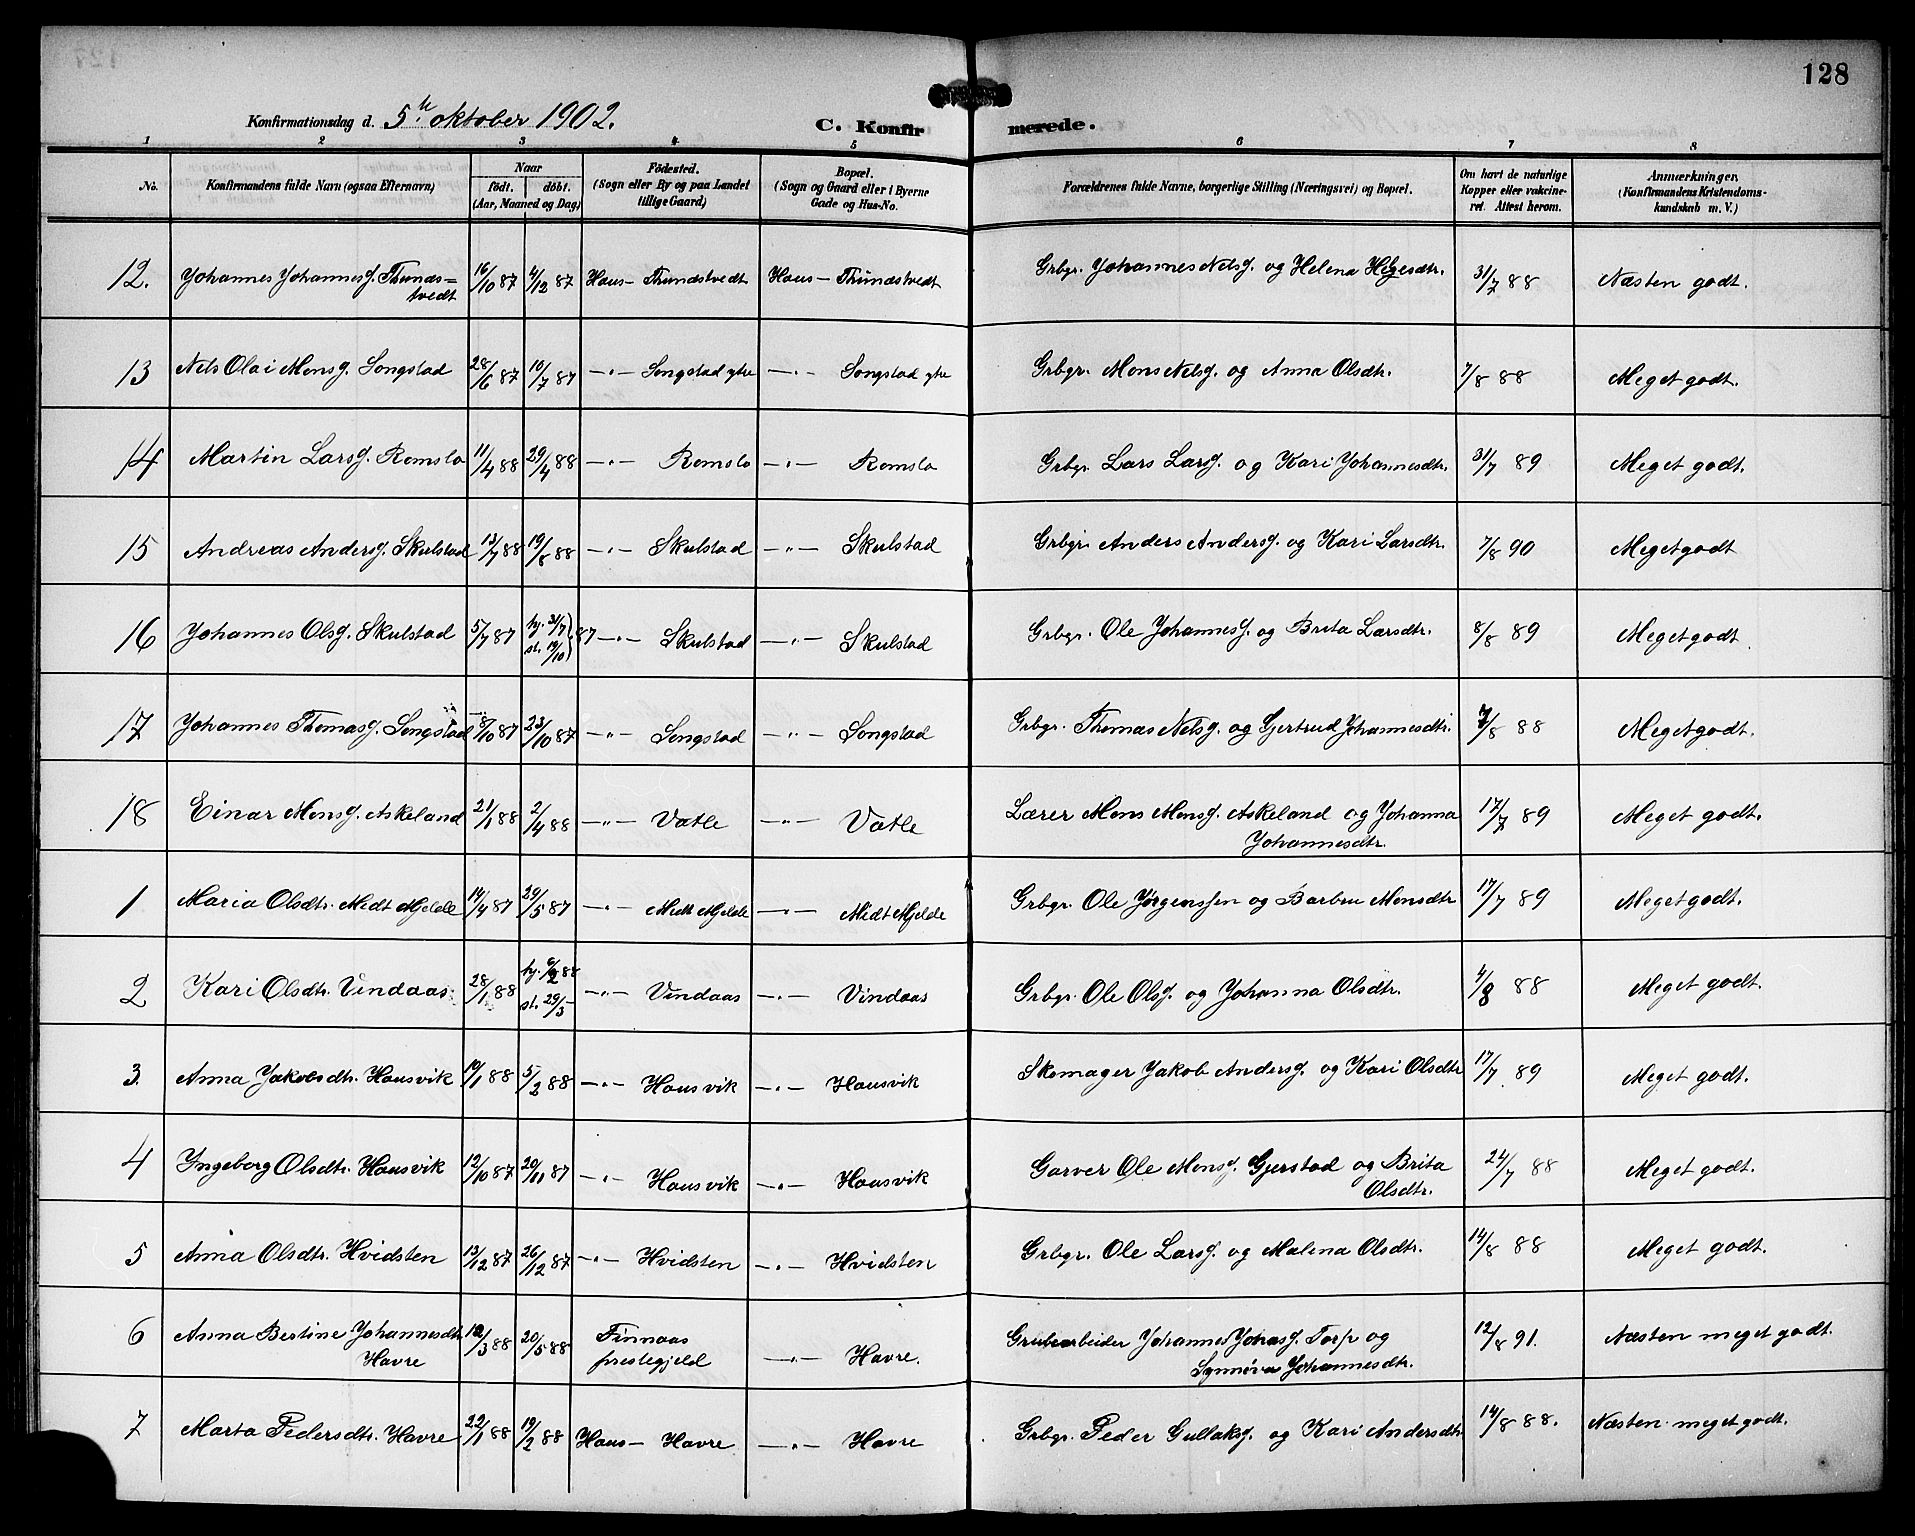 128
Konfirmationsdag d. 5te oktober 1902.
C. Konfirmerede.
1 2 3 4 5 6 7 8
No. Konfirmandens fulde Navn (ogsaa Efternavn) Naar født. døbt. (Aar, Maaned og Dag) Fødested. (Sogn eller By og paa Landet tillige Gaard) Bopæl. (Sogn og Gaard eller i Byerne Gade og Hus-No. Forældrenes fulde Navne, borgerlige Stilling (Næringsvei) og Bopæl. Om havt de naturlige Kopper eller vakcineret. Attest herom. Anmærkninger, (Konfirmandens Kristendomskundskab m. V.)
12. Johannes Johannesg. Thunds=tvedt 16/10 87 4/12 87 Haus - Thundstvedt Haus - Thundstvedt Grbgr. Johannes Nelsg. og Helena Helgesdtr. 31/7 88 Næsten godt.
13 Nels Olai Monsg. Songstad 28/6 87 10/7 87 -"- Songstad ytre -"- Songstad ytre Grbgr. Mons Nelsg. og Anna Olsdtr. 7/8 88 Meget godt.
14 Martin Larsg. Romslo 11/4 88 29/4 88 -"- Romslo -"- Romslo Grbgr. Lars Larsg. og Kari Johannesdtr. 31/7 89 Meget godt.
15 Andreas Andersg. Skulstad 13/7 88 19/8 88 -"- Skulstad -"- Skulstad Grbgr. Anders Andersg. og Kari Larsdtr. 7/8 90 Meget godt
16 Johannes Olsg. Skulstad 5/7 87 hj. 31/7 st. 19/10) 87 -"- Skulstad -"- Skulstad Grbgr. Ole Johannesg. og Brita Larsdtr. 8/8 89 Meget godt
17 Johannes Thomasg. Songstad 8/10 87 23/10 87 -"- Songstad -"- Songstad Grbgr. Thomas Nelsg. og Gjertrud Johannesdtr. 7/8 88 Meget godt.
18 Einar Monsg. Askeland 21/1 88 2/4 88 -"- Vatle -"- Vatle Lærer Mons Monsg. Askeland og Johanna Johannesdtr. 17/7 89 Meget godt.
1 Maria Olsdtr. Midt Mjelde 14/4 87 29/5 87 -"- Midt Mjelde -"- Midt Mjelde Grbgr. Ole Jørgenssen og Barbru Monsdtr 17/7 89 Meget godt.
2 Kari Olsdtr. Vindaas 28/1 88 hj. 6/2 88 st. 29/3 - -"- Vindaas -"- Vindaas Grbgr. Ole Olsg. og Johanna Olsdtr. 4/8 88 Meget godt.
3. Anna Jakobsdtr. Hausvik 19/1 88 5/2 88 -"- Hausvik -"- Hausvik Skomager Jakob Andersg. og Kari Olsdtr 17/7 89 Meget godt.
4 Ingeborg Olsdtr. Hausvik 12/10 87 20/11 87 -"- Hausvik -"- Hausvik Garver Ole Monsg. Gjerstad og Brita Olsdtr. 24/7 88 Meget godt.
5 Anna Olsdtr. Hvidsten 13/12 87 26/12 87 -"- Hvidsten -"- Hvidsten Grbgr. Ole Larsg. og Malena Olsdtr. 14/8 88 Meget godt.
6 Anna Bertine Johannesdtr. Havre /3 88 20/5 88 Finnaas prestegjeld -"- Havre. Grubearbeider Johannes Johasg. Torp og Synnøva Johannesdtr. 12/8 91. Næsten meget godt.
7 Marta Pedersdtr. Havre 22/1 88 19/2 88 Haus - Havre -"- Havre Grbgr. Peder Gullaksg. og Kari Andersdtr 14/8 88. Næsten meget godt.